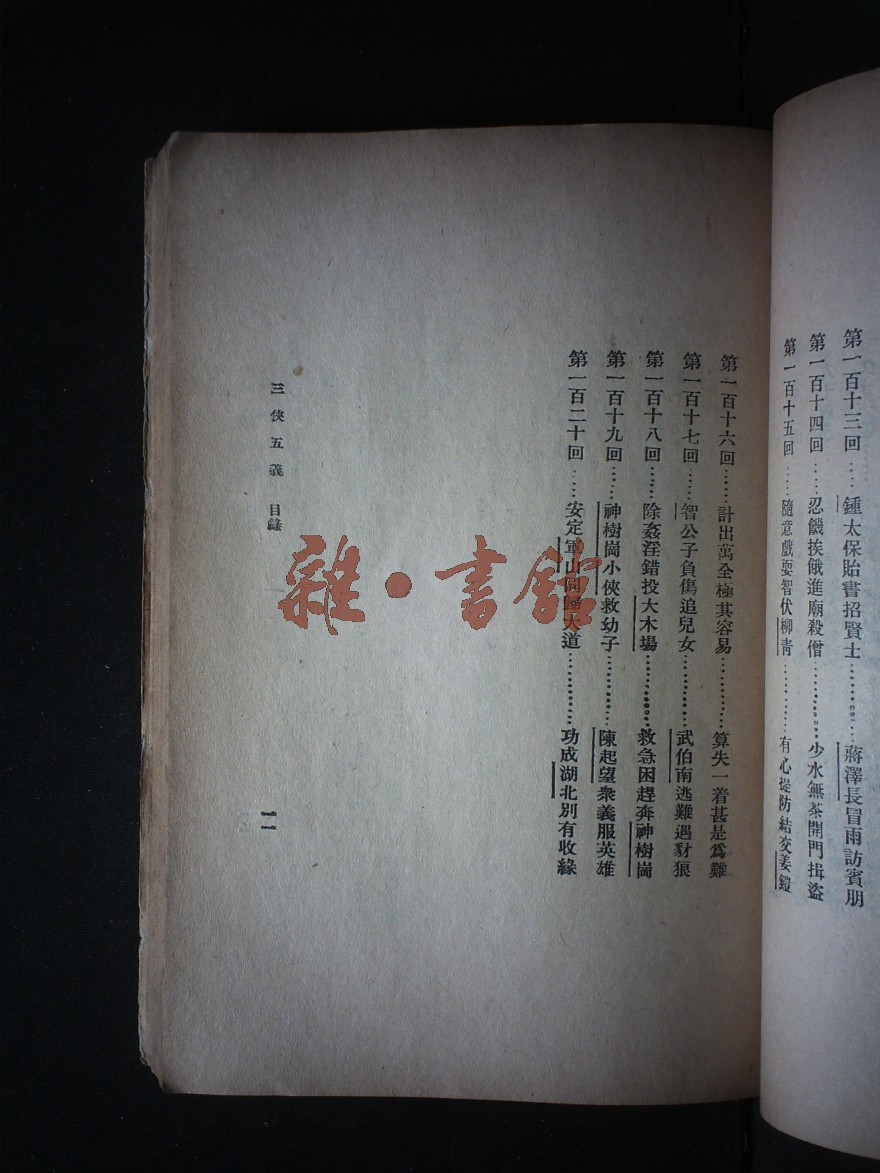 第一百十三回……鍾太保貽書招賢士…………蔣澤長冒雨訪賓朋
第一百十四回……忍饑挨餓進廟殺僧…………少水無茶開門揖盜
第一百十五回……隨意戲耍智伏柳青…………有心提防結交姜鎧
第一百十六回……計出萬全極其容易…………算失一着甚是爲難
第一百十七回……智公子負傷追兒女…………武伯南逃難遇豺狼
第一百十八回……除姦淫錯投大木場…………救急困趕奔神樹崗
第一百十九回……神樹崗小俠救幼子…………陳起望衆義服英雄
第一百二十回……安定軍山同歸大道…………功成湖北別有收緣
三俠五義 目錄
一一
雜·書館